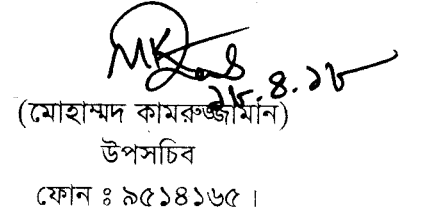 ১৮.৪.১৮
(মোহাম্মদ কামরুজ্জামান)
উপসচিব
ফোন ঃ ৯৫১৪১৬৫ ।